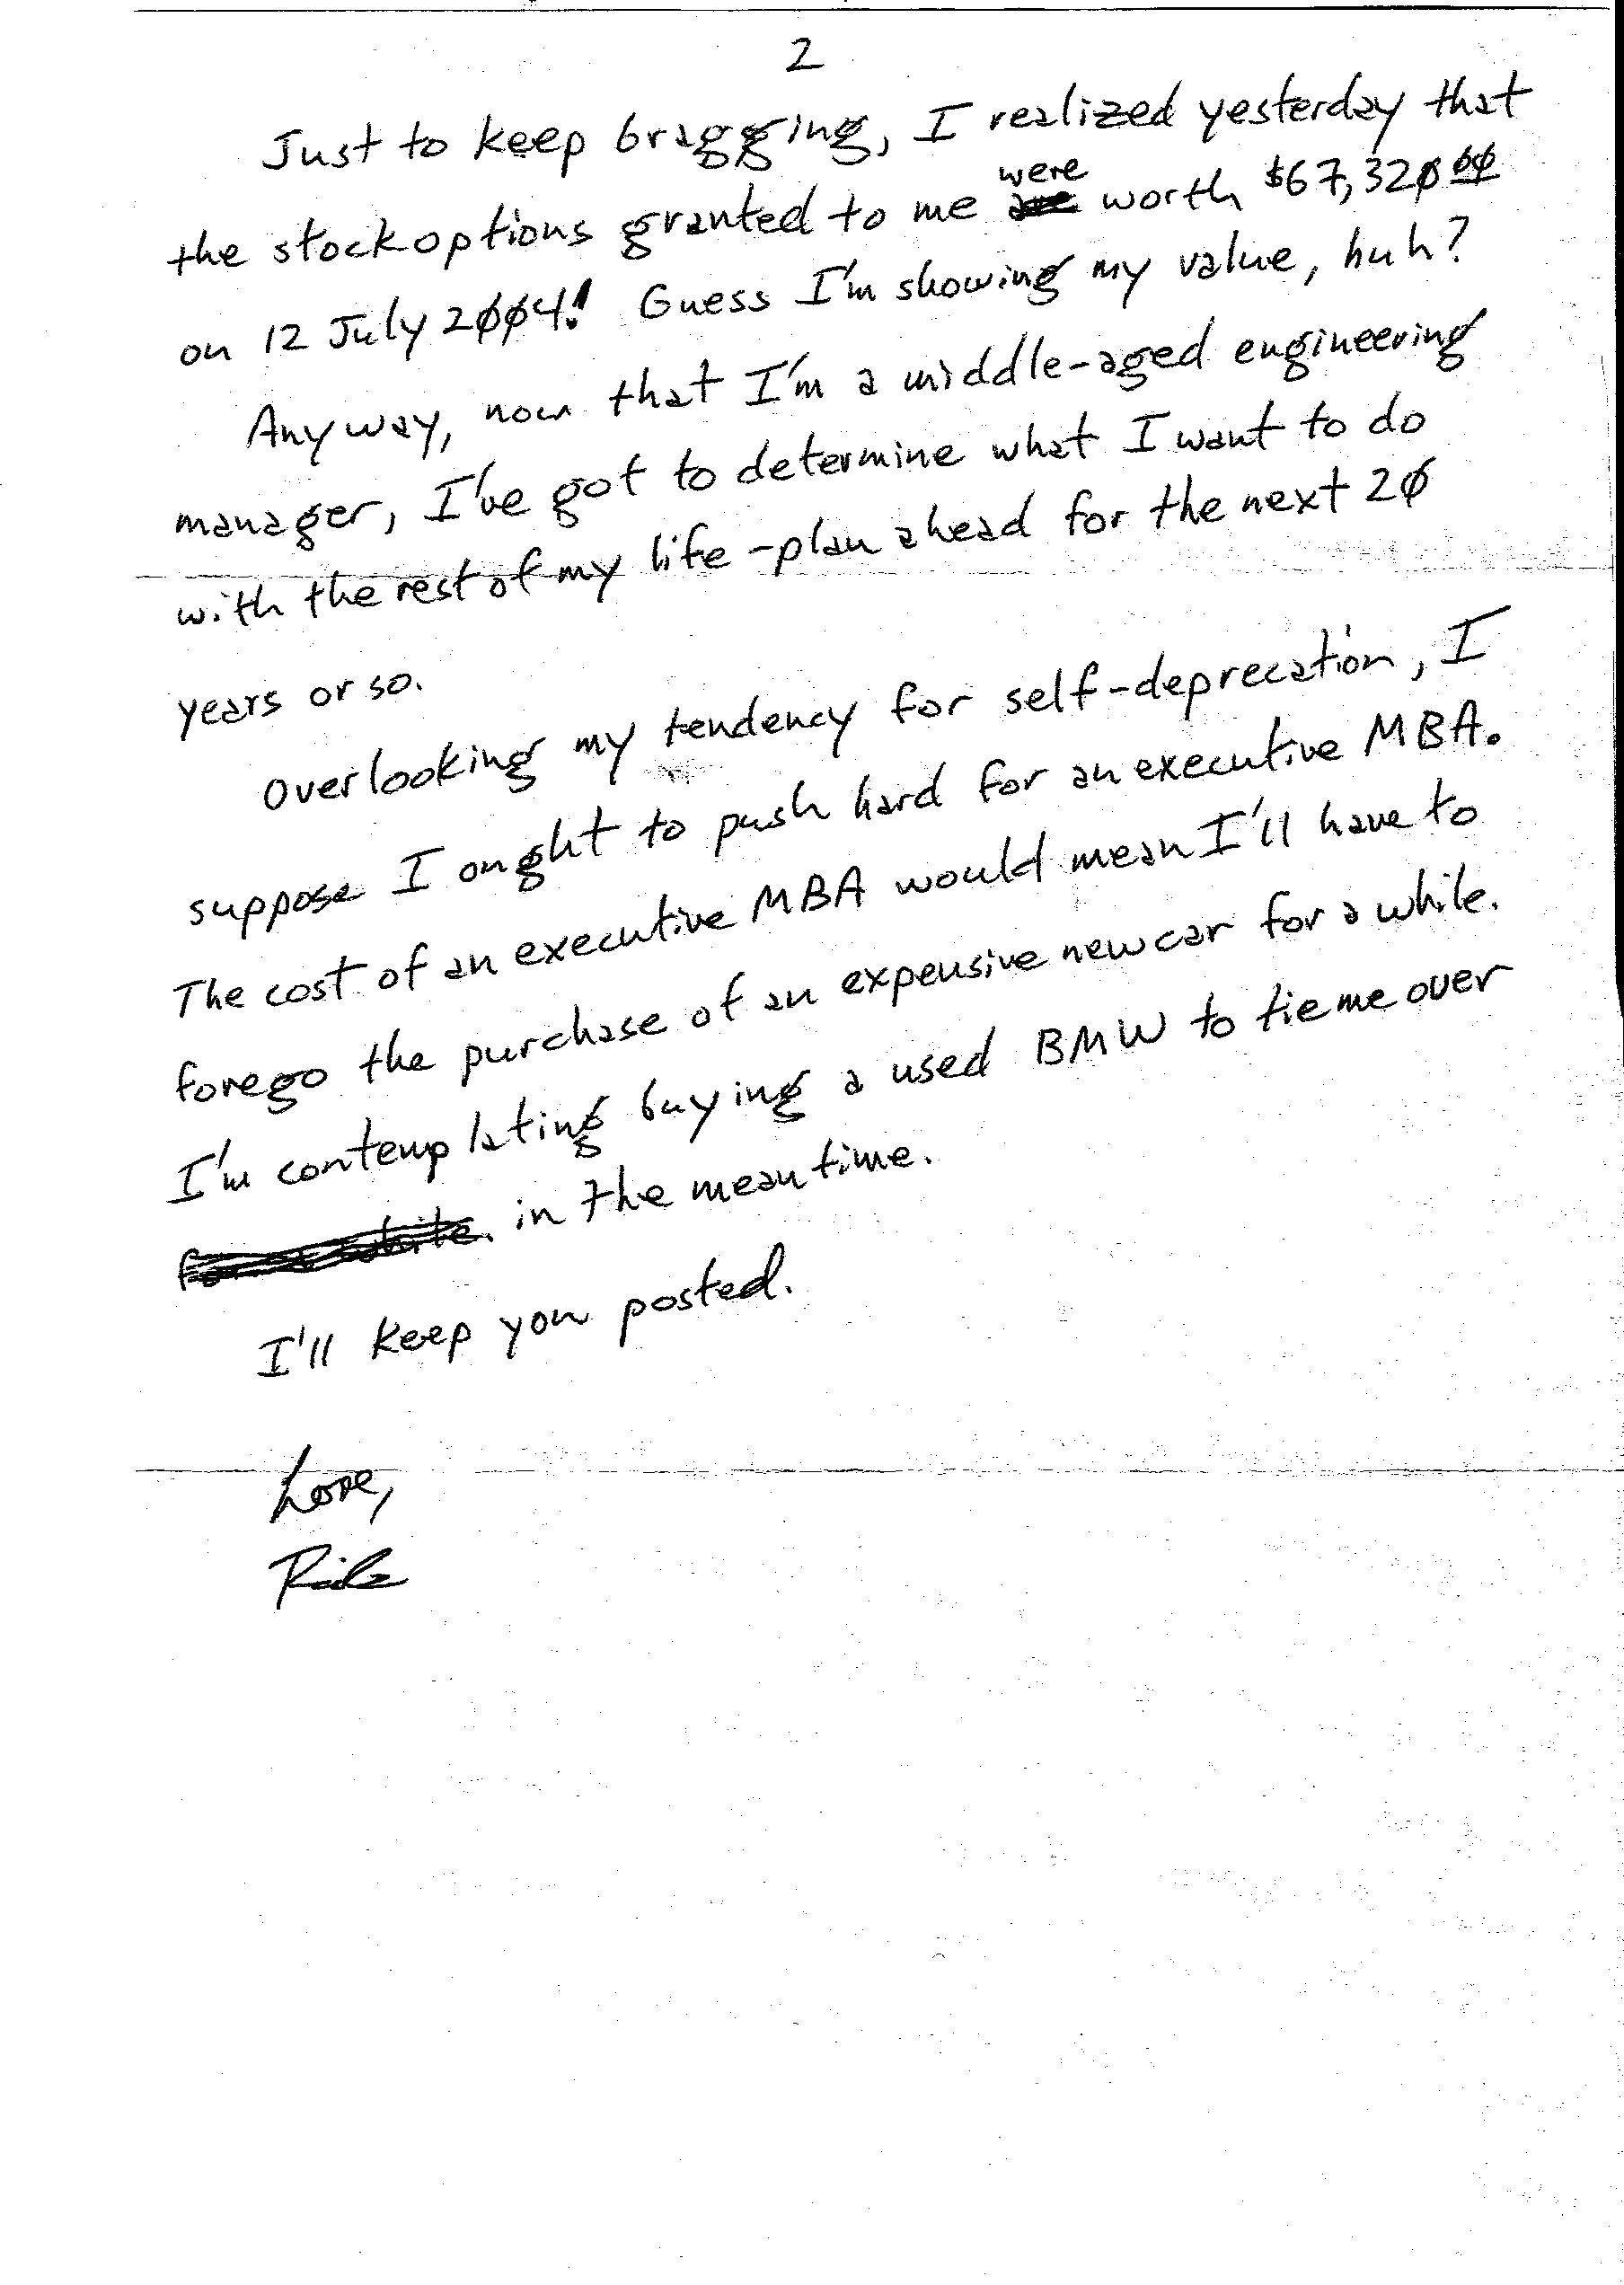 2
Just to keep bragging, I realized yesterday that
the stock options granted to me were worth $67,320.00
on 12 July 2004! Guess I'm showing my value, huh?
Anyway, now that I'm a middle-aged engineering
manager, I've got to determine what I want to do
with the rest of my life - plan ahead for the next 20
years or so.
Overlooking my tendency for self-deprecation, I
suppose I ought to push hard for an executive MBA.
The cost of an executive MBA would mean I'll have to
forego the purchase of an expensive new car for a while.
I'm contemplating buying a used BMW to tie me over
in the mean time.
I'll keep you posted.
Love,